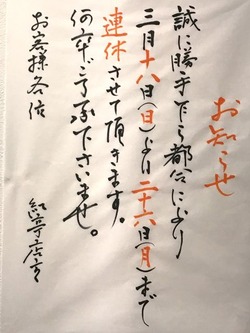 お知らせ
誠に勝手乍ら都合により
三月十八日(日)より二十六日(月)まで
連休させて頂きます。
何卒ご了承下さいませ。
お客様各位
店主